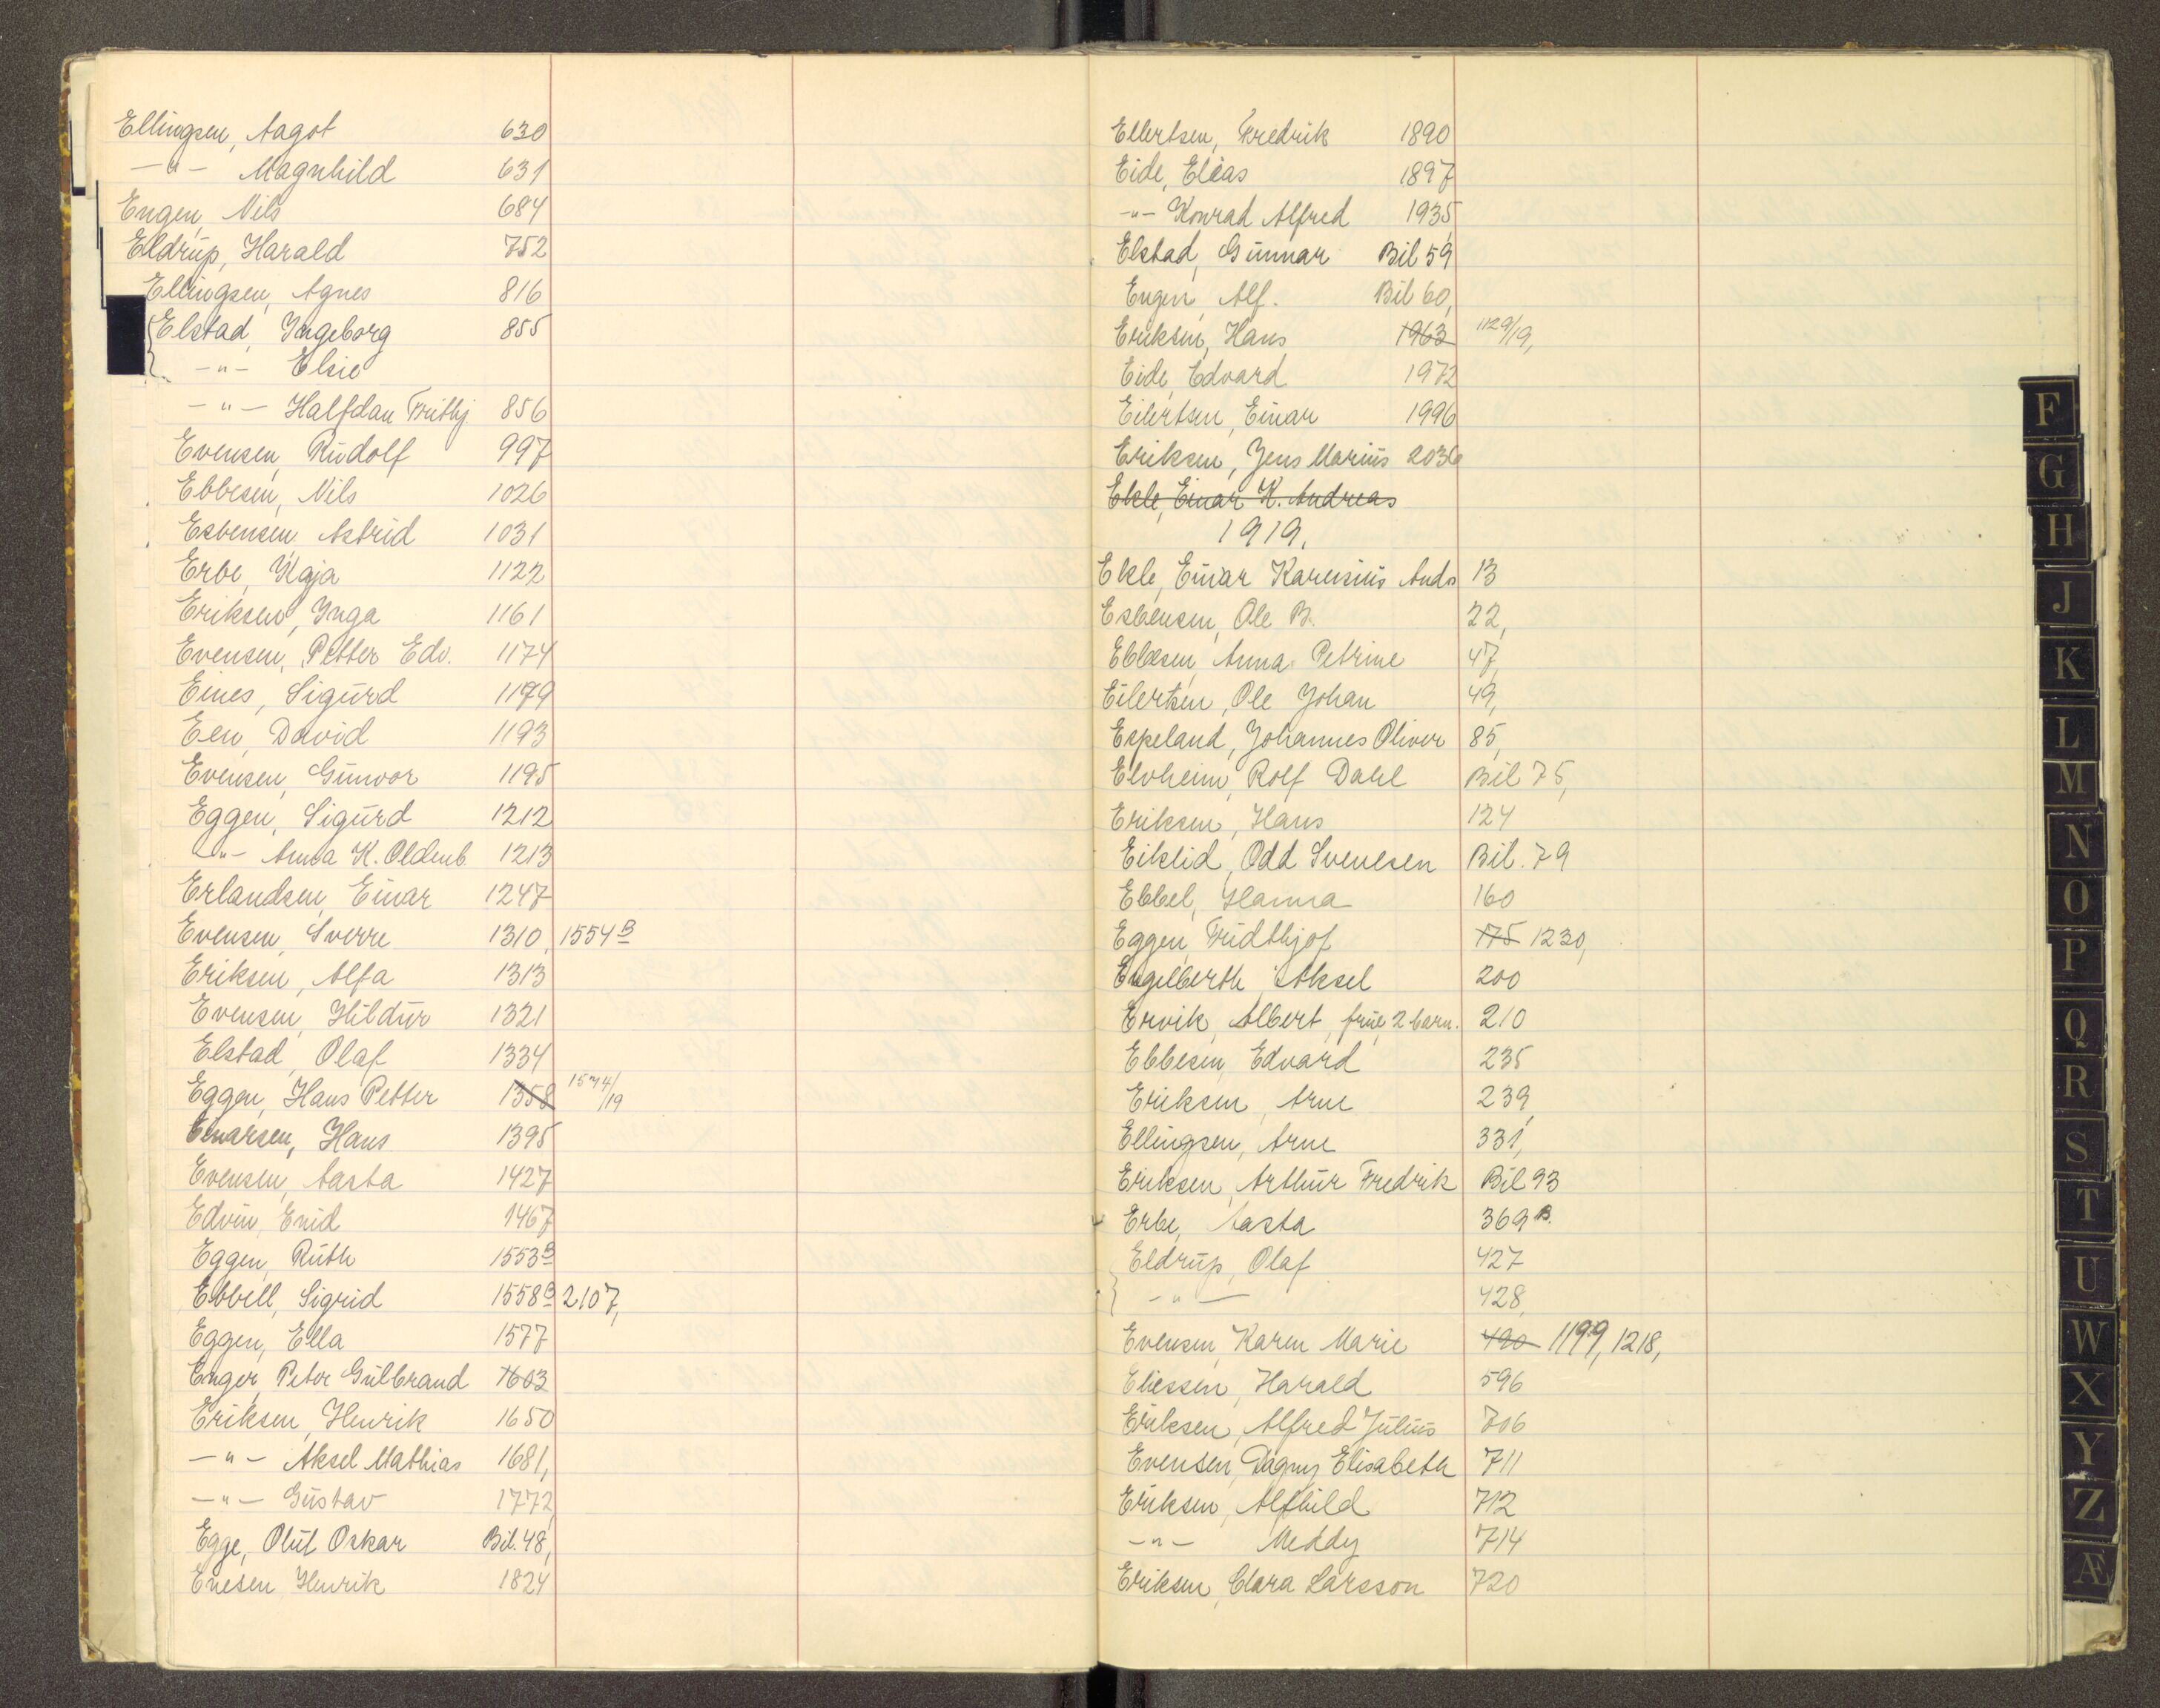 Ellingsen, Aagot 630
-"- Magnhild 631
Engen, Nils 684
Eldrup, Harald 752
Ellingsen, Agnes 816
Elstad, Ingeborg 855
-"- Elsie
-"- Halfdan Frithj. 856
Evensen, Rudolf 997
Ebbesen, Nils 1026
Esbensen, Astrid 1031
Erbe, Kaja 1122
Eriksen, Inga 1161
Evensen, Petter Edv. 1174
Eines, Sigurd 1179
Een, David 1193
Evensen, Gunvor 1195
Eggen, Sigurd 1212
-"- Anna K. Oldenb. 1213
Erlandsen, Einar 1247
Evensen, Sverre 1310, 1554 B
Eriksen, Alfa 1313
Evensen, Hildur 1321
Elstad, Olaf 1334
Eggen, Hans Petter 1358 1574/19
Einarsen, Hans 1395
Evensen, Aasta 1427
Edvin, Enid 1467
Eggen, Ruth 1553 B
Ebbell, Sigrid 1558 B 2107,
Eggen, Ella 1577
Enger, Peter Gulbrand 1603
Eriksen, Henrik 1650
-"- Aksel Mathias 1681,
-"- Gustav 1772,
Egge, Olut Oskar Bil. 48,
Enesen, Henrik 1824
Ellertsen, Fredrik 1890
Eide, Elias 1897
-"- Konrad Alfred 1935
Elstad, Gunnar Bil 59
Engen, Alf. Bil 60,
Eriksen, Hans 1963 1129/19,
Eide, Edvard 1972
Eilertsen, Einar 1996
Eriksen, Jens Marius 2036
Ekle, Einar K. Andreas
1919.
Ekle, Einar Karenius Ands 13
Esbensen, Ole B. 22,
Ebbesen, Anna Petrine 47,
Eilertsen, Ole Johan 49,
Espeland, Johannes Oliver 85,
Elvheim, Rolf Dahl Bil 75,
Eriksen, Hans 124
Eiklid, Odd Svendsen Bil. 79
Ebbel, Hanna 160
Eggen, Fridthjof 175 1230,
Engelberth, Aksel 200
Ervik, Albert, frue 2 barn. 210
Ebbesen, Edvard 235
Eriksen, Arne 239,
Ellingsen, Arne 331,
Eriksen, Arthur Fredrik Bil 93
Erbe, Aasta 369 B.
Eldrup, Olaf 427
-"- 428,
Evensen, Karen Marie 490 1199, 1218,
Eliessen, Harald 596
Eriksen, Alfred Julius 706
Evensen, Dagny Elisabeth 711
Eriksen, Alfhild 712
-"- Meddy 714
Eriksen, Clara Larsson 720
F
G
H
J
K
L
M
N
O
P
Q
R
S
T
U
W
X
Y
Z
Æ